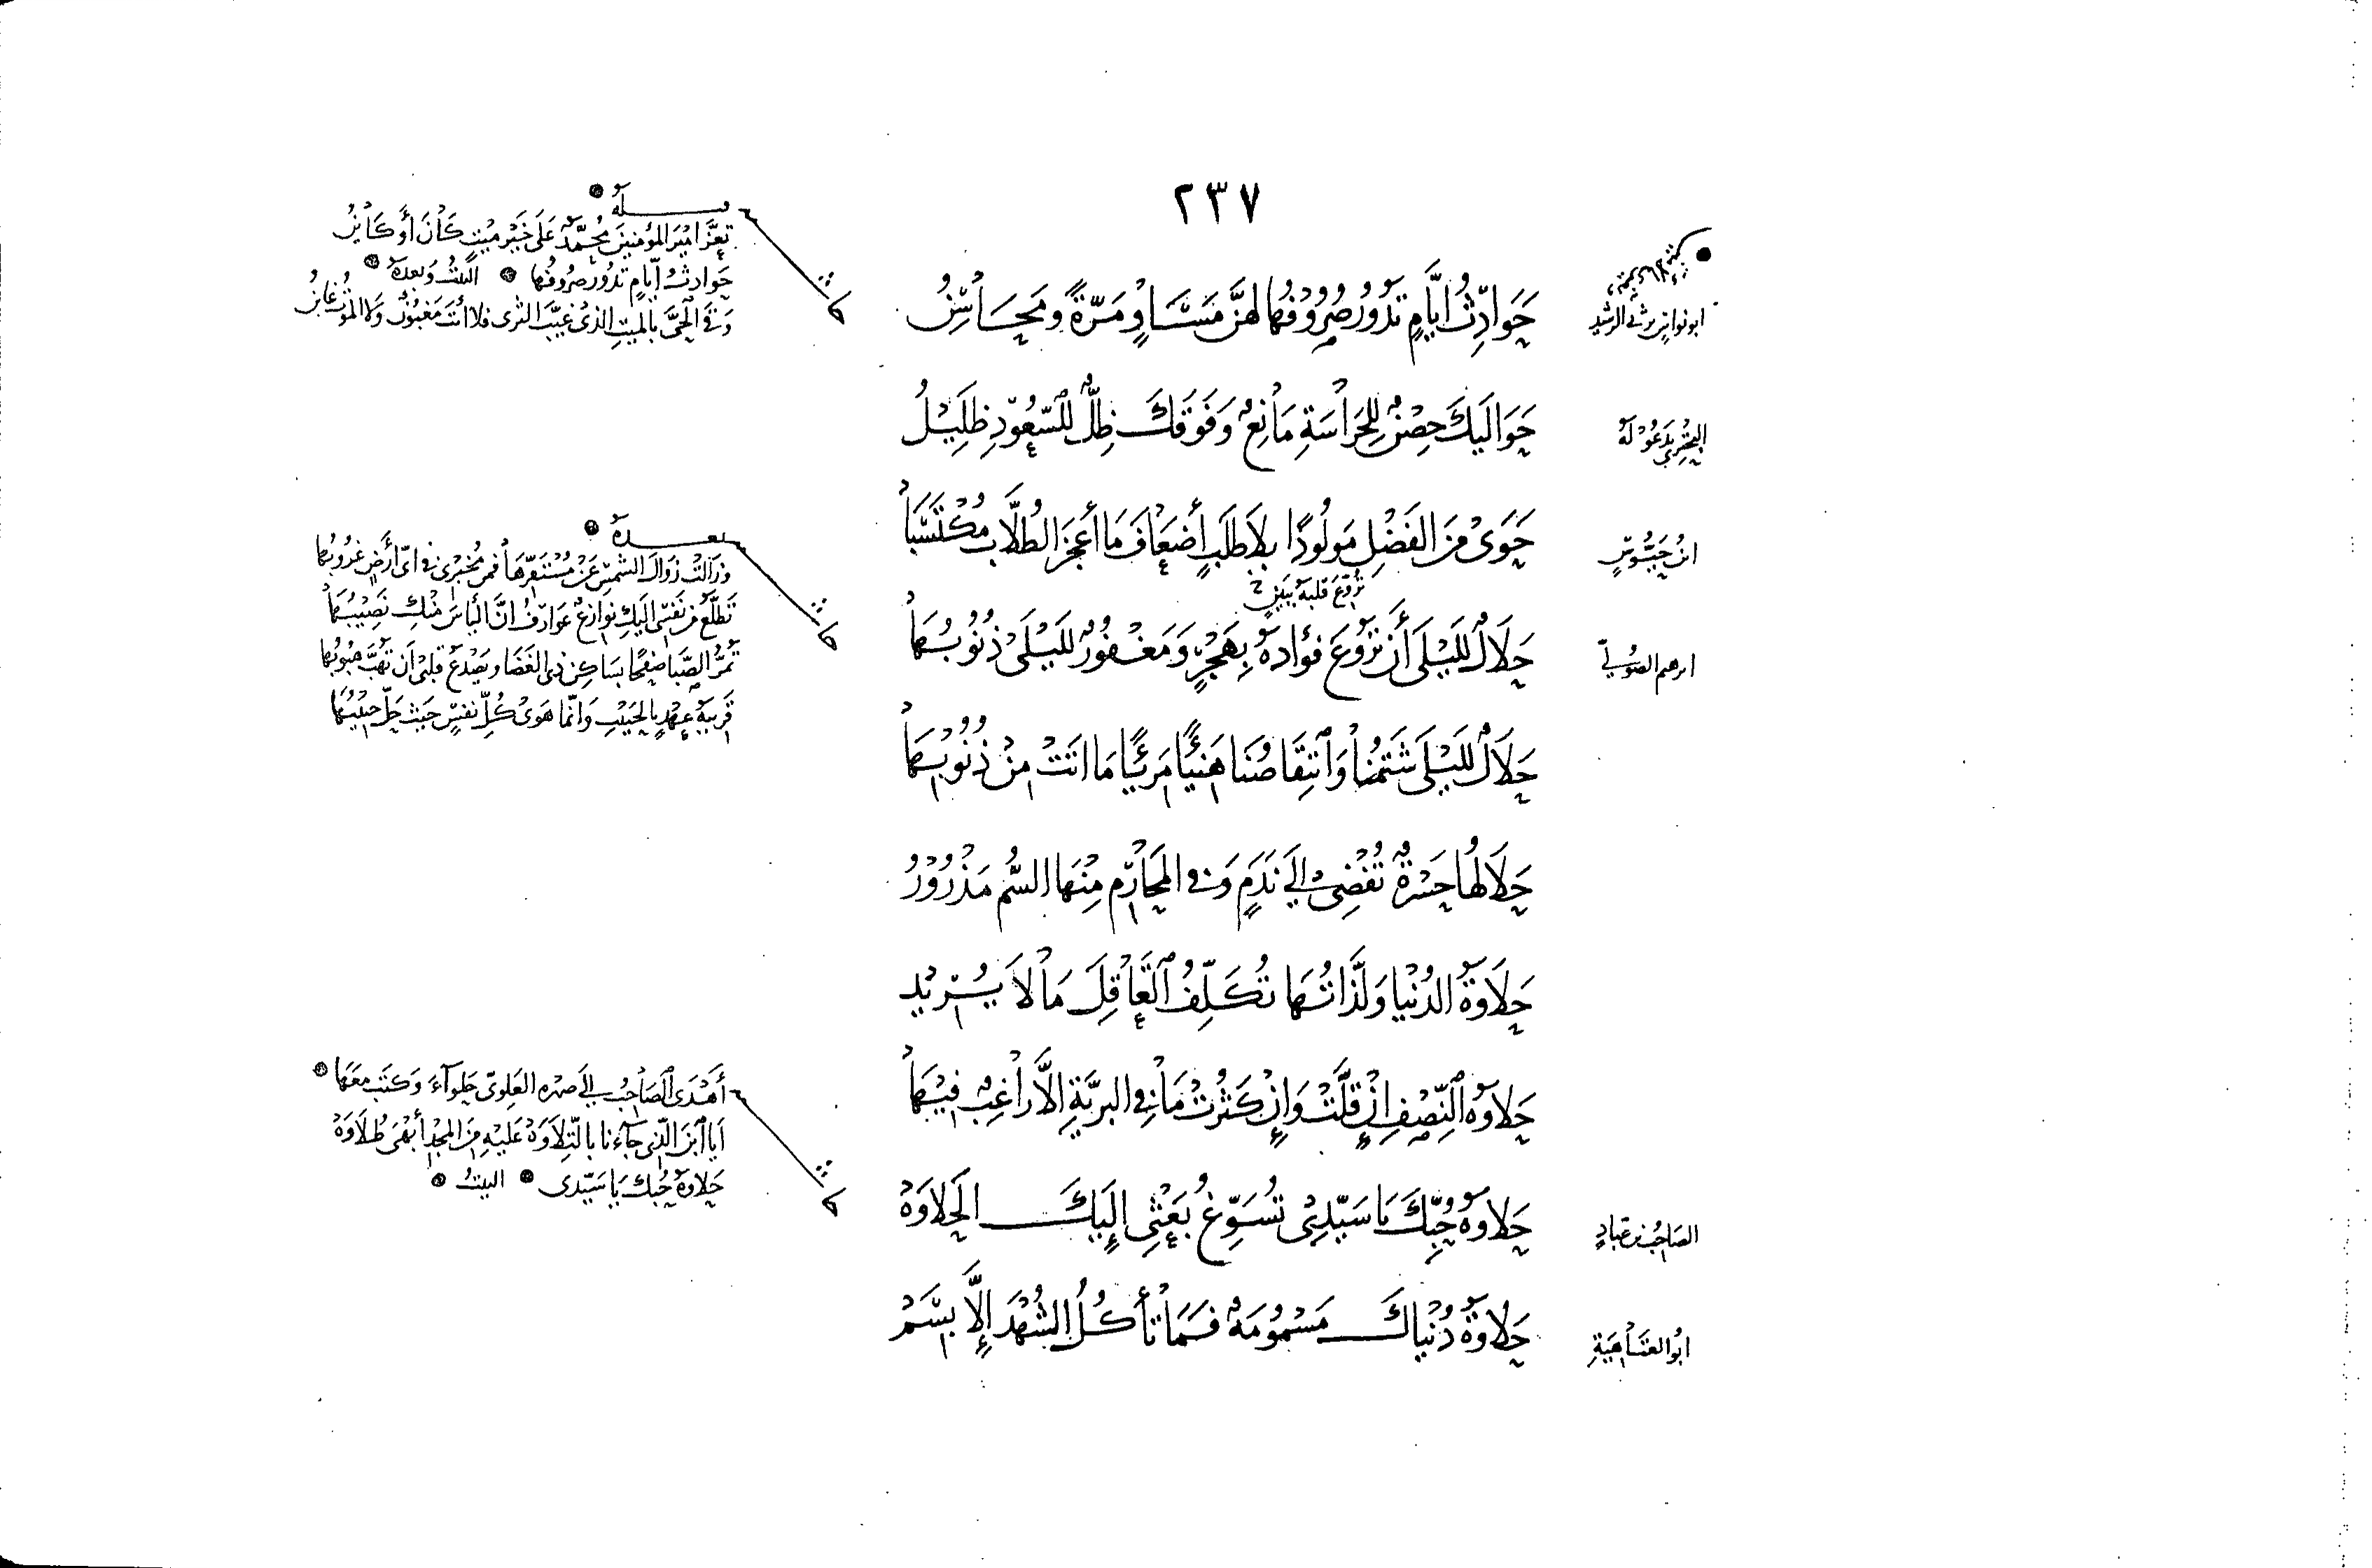 ٢٣٧
ابو نواس يرثي الرشيد
حَوَادِثُ أَيَّامٍ تَدُورُ صُرُوفُهَا لَهُنَّ مَسَاوٍ مَرَّةً وَمَحَاسِنُ
قبله
تَعَزَّ امِيرَ المؤمنينَ مُحمَّدٌ عَلَى خَيْرِ مَيْتٍ كَانَ أَوْ كَائِنُ
حَوادثُ أيّامٍ تدُورُ صُرُوفُهَا البيتُ وَبعدهُ
وَفِي الْحَيِّ بالمَيتِ الذي غَيَّبَ الثرى فلا أنتَ مَغبُونٌ وَلا الموتُ غابنُ
البحتري يَدعُو لَهُ
حَوَالَيكَ حِصْنٌ لِلحَرَاسَةِ مَانِعٌ وَفَوقَكَ ظِلٌّ لِلسُّعُودِ ظَلِيلُ
ابنُ حَيُّوسٍ
حَوَى مِنَ الفَضْلِ مَولُودًا بِلاَ طَلَبٍ أَضعَافَ مَا أَعجَزَ الطُلَّابَ مُكْتَسَبَا
تُروّعَ قلبهُ ببَينٍ
ابرهيم الصُوليّ
حَلَالٌ لِلَيْلَى أَن تَرُوعَ فؤادهُ بِهَجْرٍ وَمَغفُورٌ لِلَيْلَى ذُنُوبُهَا
بعدهُ
وزَالتْ زَوَالَ الشمسِ عَنْ مُسْتَقرّهَا فمن مُخبِري في ايّ أرضٍ غرُوبُهَا
تَطلَّعُ من نَفسِي إليكِ نوازعٌ عَوارفُ انَّ اليأسَ مِنكِ نَصِيبُهَا
تَمُرُّ الصَّبَا صَفحًا بسَاكِنِ ذي الغَضَا ويَصدَعُ قلبي أن تَهُبَّ هُبُوبُهَا
قَريبةُ عهْدٍ بالحَبيبِ وَإنَّما هَوَى كُلِّ نفسٍ حَيثُ حَلَّ حَبيبُهَا
حَلَالٌ لِلَيْلَى شَتْمُنَا وَٱنتِقَاصُنَا هَنِيًّا مَرِيئًا مَا اتَتْ مِنْ ذُنُوبِهَا
حَلَالُهَا حَسْرَةٌ تُفْضِي إلى نَدَمٍ وَفي المَحَارِمِ مِنْهَا السُّمُّ مَذْرُورُ
حَلَاوَةُ الدُّنْيا وَلَذَّاتُهَا تُكَلِّفُ ٱلعَاقِلَ مَا لَا يُرِيْد
حَلاوَةُ ٱلنِّصْفِ إِنْ قَلَّتْ وَإِنْ كَثُرتْ مَا في البريَّةِ إلاَّ رَاغِبٌ فِيهَا
أَهْدَى ٱلصَاحِبُ إلى صهره العَلويّ حَلوآءَ وَكتَبَ معَهَا
أيَا ٱبنَ الَّذي جآءَنا بالتِلَاوَهْ عَليْهِ مِنَ المجْدِ أبْهَى طُلَاوَهْ
حَلاوةُ حُبّكَ يَا سَيّدي البيتُ
الصَاحِبُ بن عبّادٍ
حَلاوةُ حُبِّكَ يَا سَيّدِي تُسَوِّغُ بَعْثِي إلَيكَ الحَلاوَهْ
ابُو العَتَاهِيَةِ
حَلاوَةُ دُنْيَاكَ مَسْمُومَةٌ فَمَا تَأكُلُ الشُّهْدَ إلَّا بِسَمّ